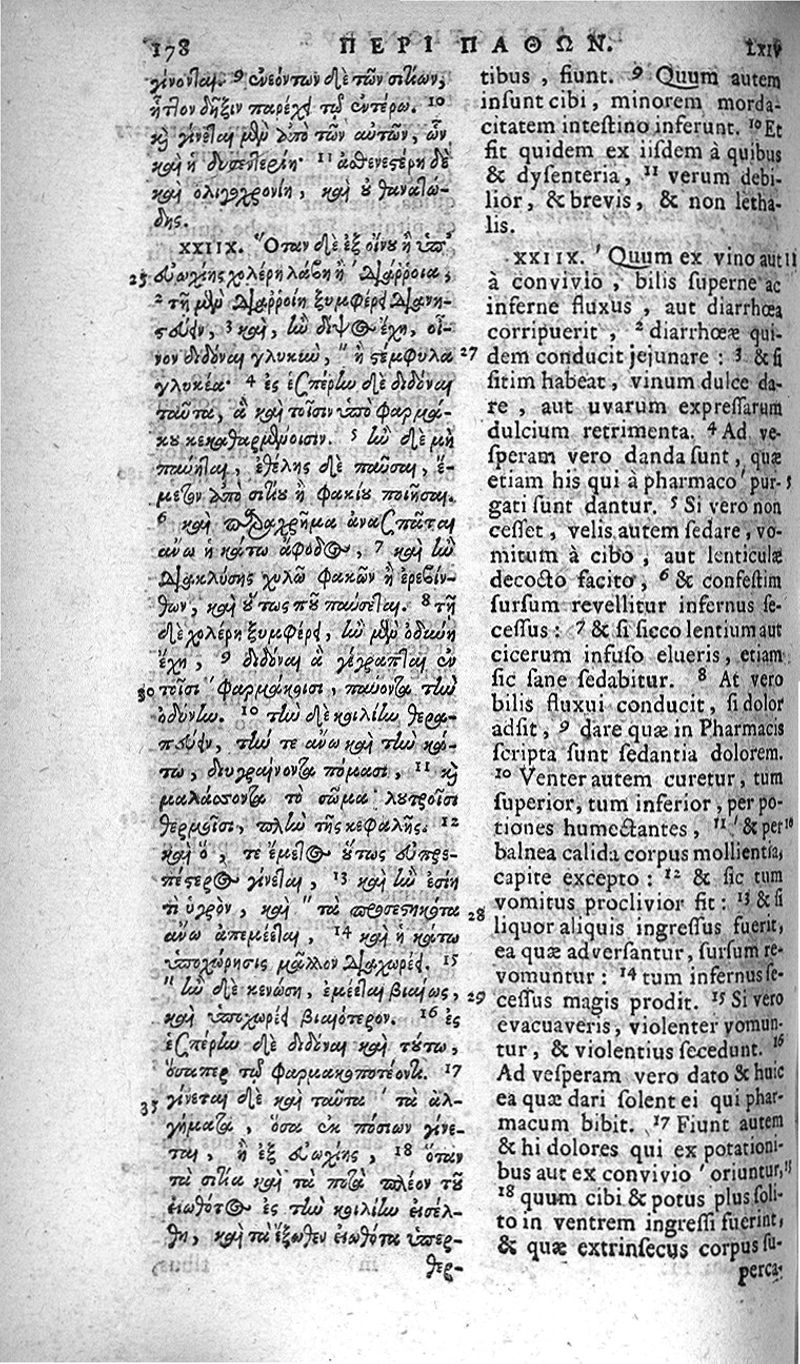 178 ΠΕΡΙ ΠΑΘΩΝ. LXIV
γίνονται. 9 ἐνεόντων δὲ τῶν σιτίων,
ἧττον δῆξιν παρέχει τῷ ἐντέρῳ. 10
καὶ γίνεται μὲν ἀπὸ τῶν αὐτῶν, ὧν
καὶ ἡ δυσεντερίη· 11 ἀσθενεστέρη δὲ
καὶ ὀλιγοχρονίη, καὶ οὐ θανατώ-
δης.
XXIIX. Ὅταν δὲ ἐξ οἴνου ἢ ὑπ'
25 εὐωχίης χολέρη λάβῃ ἢ διάῤῥοια,
2 τῇ μὲν διαῤῥοίῃ ξυμφέρει διανη-
στεύειν, 3 καὶ, ἢν δίψος ἔχῃ, οἶ-
νον διδόναι γλυκὺν, ἢ στέμφυλα 27
γλυκέα· 4 ἐς ἑσπέρην δὲ διδόναι
ταῦτα, ἃ καὶ τοῖσιν ὑπὸ φαρμά-
κου κεκαθαρμένοισιν. 5 ἢν δὲ μὴ
παύηται, ἐθέλῃς δὲ παῦσαι, ἔ-
μετον ἀπὸ σιτίου ἢ φακίου ποιῆσαι.
6 καὶ παραχρῆμα ἀνασπᾶται
ἄνω ἡ κάτω ἄφοδος, 7 καὶ ἢν
διακλύσῃς χυλῷ φακῶν ἢ ἐρεβίν-
θων, καὶ οὕτως που παύσεται. 8 τῇ
δὲ χολέρῃ ξυμφέρει, ἢν μὲν ὀδύνη
ἔχῃ, 9 διδόναι ἃ γέγραπται ἐν
30 τοῖσι φαρμάκοισι, παύοντα τὴν
ὀδύνην. 10 τὴν δὲ κοιλίην θερα-
πεύειν, τήν τε ἄνω καὶ τὴν κά-
τω, διυγραίνοντα πόμασι, 11 καὶ
μαλάσσοντα τὸ σῶμα λουτροῖσι
θερμοῖσι, πλὴν τῆς κεφαλῆς. 12
καὶ ὅ, τε ἔμετος οὕτως εὐπρε-
πέστερος γίνεται, 13 καὶ ἢν ἐσίῃ
τι ὑγρὸν, καὶ τὰ προσεστηκότα 28
ἄνω ἀπεμέεται, 14 καὶ ἡ κάτω
ὑποχώρησις μᾶλλον διαχωρέει. 15
ἢν δὲ κενώσῃ, ἐμέεται βιαίως, 29
καὶ ὑποχωρέει βιαιότερον. 16 ἐς
ἑσπέρην δὲ διδόναι καὶ τούτῳ,
ὅσαπερ τῷ φαρμακοποτέοντι. 17
35 γίνεται δὲ καὶ ταῦτα τὰ ἀλ-
γήματα, ὅσα ἐκ πόσιων γίνε-
ται, ἢ ἐξ εὐωχίης, 18 ὅταν
τὰ σιτία καὶ τὰ ποτὰ πλέον τοῦ
εἰωθότος ἐς τὴν κοιλίην εἰσέλ-
θῃ, καὶ τὰ ἔξωθεν εἰωθότα ὑπερ-
θερ-
tibus, fiunt. 9 Quum autem
insunt cibi, minorem morda-
citatem intestino inferunt. 10 Et
fit quidem ex iisdem à quibus
& dysenteria, 11 verum debi-
lior, & brevis, & non letha-
lis.
XXIIX. Quum ex vino aut 11
à convivio, bilis superne ac
inferne fluxus, aut diarrhœa
corripuerit, 2 diarrhœæ qui-
dem conducit jejunare: 3 & si
sitim habeat, vinum dulce da-
re, aut uvarum expressarum
dulcium retrimenta. 4 Ad ve-
speram vero danda sunt, quæ
etiam his qui à pharmaco pur- 5
gati sunt dantur. 5 Si vero non
cesset, velis autem sedare, vo-
mitum à cibo, aut lenticulæ
decocto facito, 6 & confestim
sursum revellitur infernus se-
cessus: 7 & si sicco lentium aut
cicerum infuso elueris, etiam
sic sane sedabitur. 8 At vero
bilis fluxui conducit, si dolor
adsit, 9 dare quæ in Pharmacis
scripta sunt sedantia dolorem.
10 Venter autem curetur, tum
superior, tum inferior, per po-
tiones humectantes, 11 & per 10
balnea calida corpus mollientia,
capite excepto: 12 & sic tum
vomitus proclivior fit: 13 & si
liquor aliquis ingressus fuerit,
ea quæ adversantur, sursum re-
vomuntur: 14 tum infernus se-
cessus magis prodit. 15 Si vero
evacuaveris, violenter vomun-
tur, & violentius secedunt. 16
Ad vesperam vero dato & huic
ea quæ dari solent ei qui phar-
macum bibit. 17 Fiunt autem
& hi dolores qui ex potationi-
bus aut ex convivio oriuntur, 15
18 quum cibi & potus plus soli-
to in ventrem ingressi fuerint,
& quæ extrinsecus corpus su-
perca-